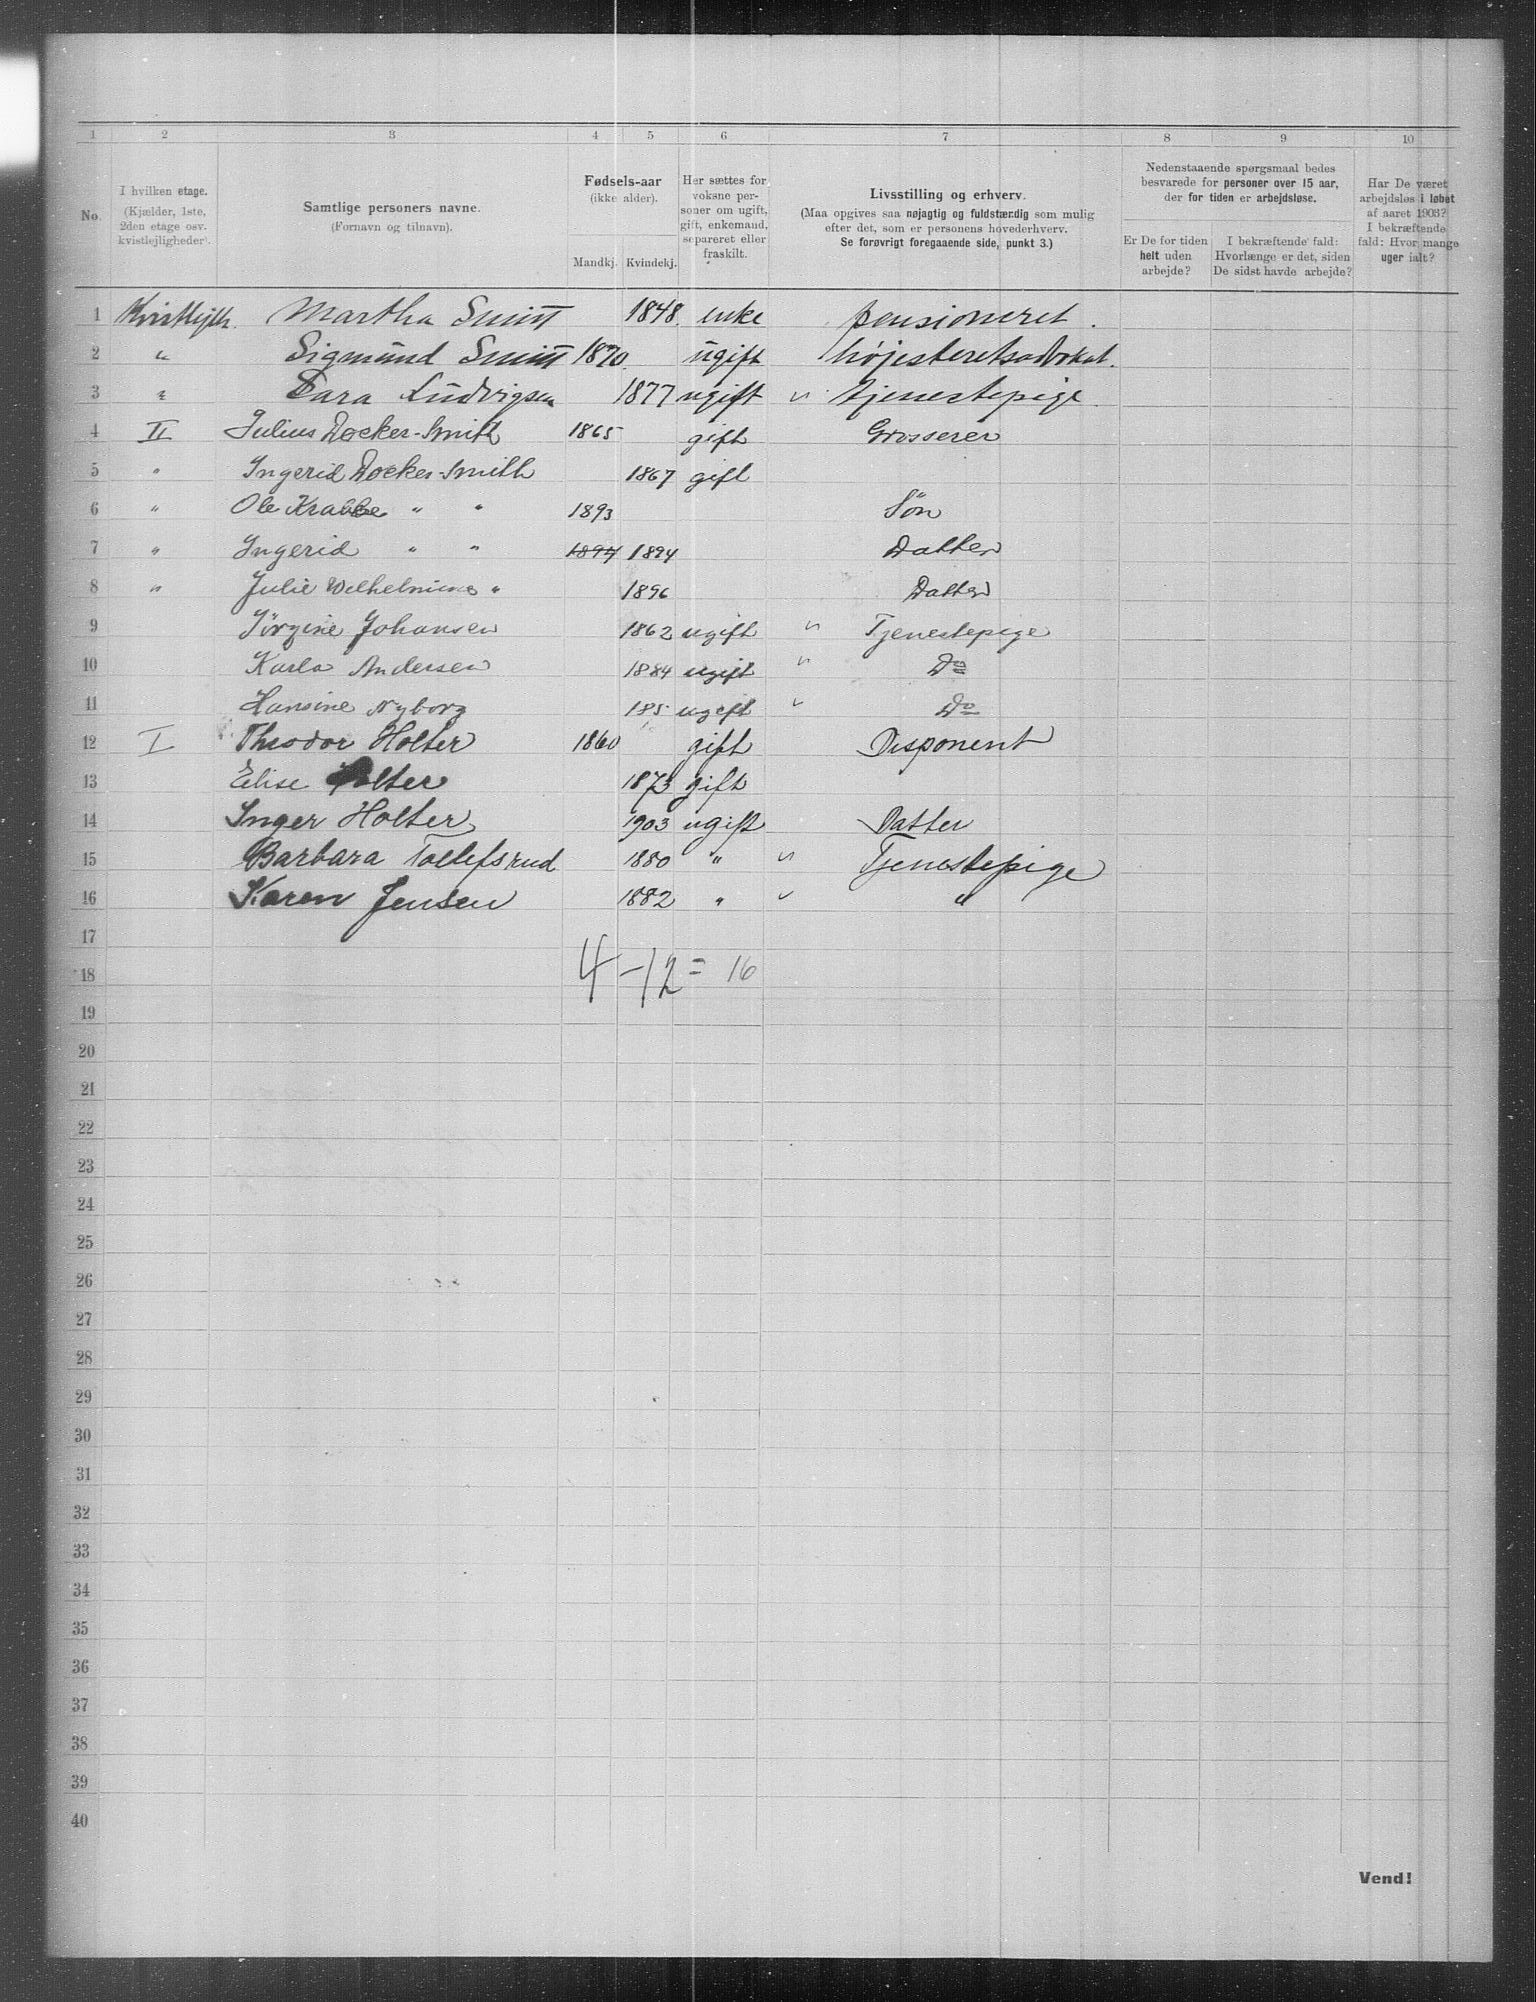 1 2 3 4 5 6 7 8 9 10
No.
I hvilken etage.
(Kjælder, 1ste,
2den etage osv.
kvistlejligheder).
Samtlige personers navne.
(Fornavn og tilnavn).
Fødsels-aar
(ikke alder).
Mandkj. Kvindekj.
Her sættes for
voksne per-
soner om ugift,
gift, enkemand,
separeret eller
fraskilt.
Livsstilling og erhverv.
(Maa opgives saa nøjagtig og fuldstændig som mulig
efter det, som er personens hovederhverv.
Se forøvrigt foregaaende side, punkt 3.)
Nedenstaaende spørgsmaal bedes
besvarede for personer over 15 aar,
der for tiden er arbejdsløse.
Er De for tiden
helt uden
arbejde?
I bekræftende fald:
Hvorlænge er det, siden
De sidst havde arbejde?
Har De været
arbejdsløs i løbet
af aaret 1903?
I bekræftende
fald: Hvor mange
uger ialt?
1 Kvistlejlh. Martha Smitt 1848. enke pensioneret.
2 " Sigmund Smitt 1870. ugift højesteretsadvokat.
3 " Sara Ludvigsen 1877 ugift " tjenestepige.
4 II Julius Døcker-Smith 1865 gift Grosserer
5 " Ingerid Døcker-Smith 1867 gift
6 " Ole Krabbe " " 1893 Søn
7 " Ingerid " " 1894 1894 Datter
8 " Julie Wilhelmine " 1896 Datter
9 Jørgine Johansen 1862 ugift " Tjenestepige
10 Karla Andersen 1884 ugift " Do
11 Hansine Nyborg 185 ugift " Do
12 I Theodor Holter 1860 gift Disponent
13 Elise Holter 1873 gift
14 Inger Holter 1903 ugift Datter
15 Barbara Tollefsrud 1880 " " Tjenestepige
16 Karen Jensen 1882 " " "
17
18 4-12 = 16
19
20
21
22
23
24
25
26
27
28
29
30
31
32
33
34
35
36
37
38
39
40
Vend!